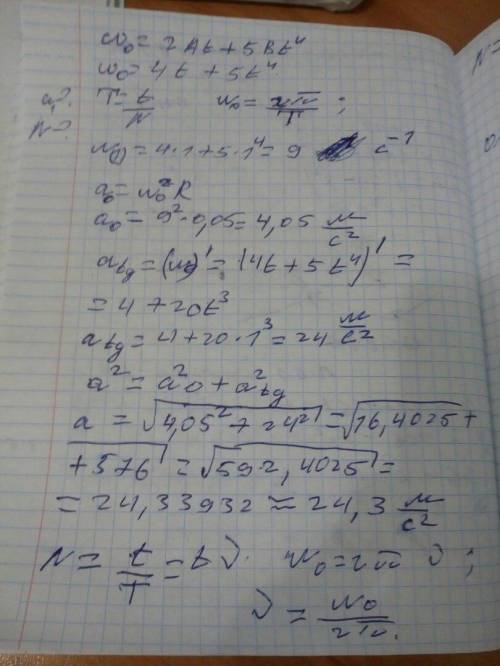 ω₀ = 2At + 5Bt⁴
ω₀ = 4t + 5t⁴
a-?. T = t/N ω₀ = 2π/T ;
N-?
ω₀ = 4·1 + 5·1⁴ = 9 c⁻¹
a₀ = ω₀²R
a₀ = 9²·0,05 = 4,05 м/c²
a_tg = (ω₀)' = (4t + 5t⁴)' =
= 4 + 20t³
a_tg = 4 + 20·1³ = 24 м/c²
a² = a²₀ + a²_tg
a = √4,05² + 24² = √16,4025 +
+ 576 = √592,4025 =
= 24,33932 ≈ 24,3 м/c²
N = t/T = tν. ω₀ = 2πν ;
ν = ω₀/2π.